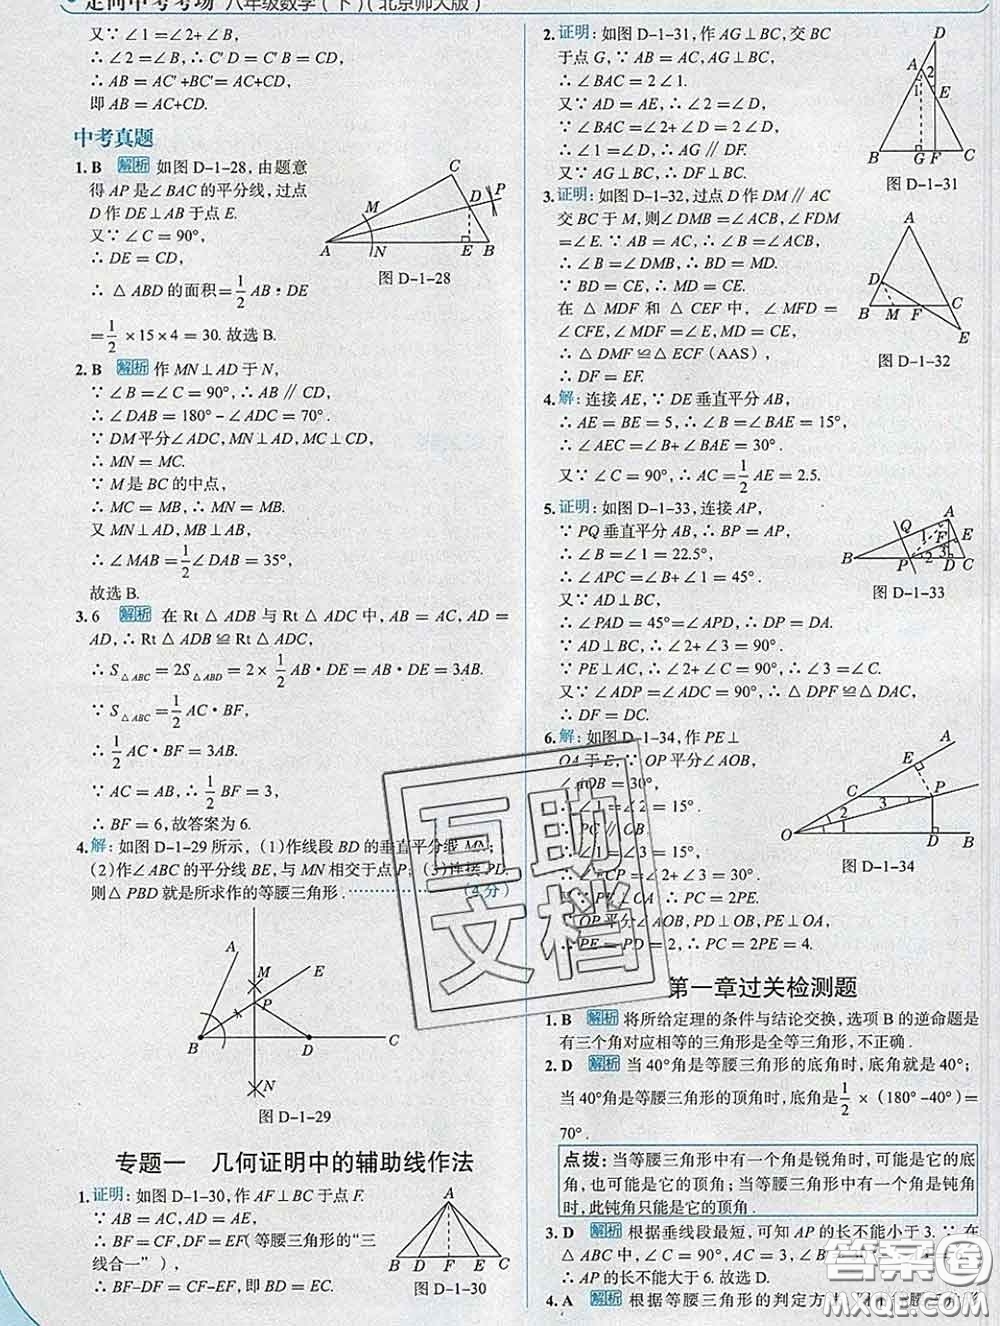 走向中考考场 八年级数学(下)(北京师大版)
又∵∠1=∠2+∠B,
∴∠2=∠B,∴C′D=C′B=CD,
∴AB=AC′+BC′=AC+CD,
即AB=AC+CD.
中考真题
1. B 解析 如图D-1-28,由题意
得AP是∠BAC的平分线,过点
D作DE⊥AB于点E.
又∵∠C=90°,
∴DE=CD,
∴△ABD的面积=1/2 AB·DE
=1/2×15×4=30.故选B.
C D P M A N E B
图D-1-28
2. B 解析 作MN⊥AD于N,
∵∠B=∠C=90°,∴AB∥CD,
∴∠DAB=180°-∠ADC=70°.
∵DM平分∠ADC,MN⊥AD,MC⊥CD,
∴MN=MC.
∵M是BC的中点,
∴MC=MB,∴MN=MB.
又MN⊥AD,MB⊥AB,
∴∠MAB=1/2∠DAB=35°,
故选B.
3. 6 解析 在Rt△ADB与Rt△ADC中,AB=AC,AD=
AD,∴Rt△ADB≌Rt△ADC,
∴S△ABC=2S△ABD=2×1/2 AB·DE=AB·DE=3AB.
∵S△ABC=1/2 AC·BF,
∴1/2 AC·BF=3AB.
∵AC=AB,∴1/2 BF=3,
∴BF=6,故答案为6.
4. 解:如图D-1-29所示,(1)作线段BD的垂直平分线MN;
(2)作∠ABC的平分线BE,与MN相交于点P;(3)连接PD,
则△PBD就是所求作的等腰三角形.……………(4分)
A M E P B D C N
图D-1-29
专题一 几何证明中的辅助线作法
1. 证明:如图D-1-30,作AF⊥BC于点F.
∵AB=AC,AD=AE,
∴BF=CF,DF=EF(等腰三角形的“三
线合一”),
∴BF-DF=CF-EF,即BD=EC.
A B D F E C
图D-1-30
2. 证明:如图D-1-31,作AG⊥BC,交BC
于点G,∵AB=AC,AG⊥BC,
∴∠BAC=2∠1.
又∵AD=AE,∴∠D=∠2.
又∵∠BAC=∠D+∠2,
∴∠1=∠D,∴AG∥DF.
又∵AG⊥BC,∴DF⊥BC.
D A 2 1 E B G F C
图D-1-31
3. 证明:如图D-1-32,过点D作DM∥AC
交BC于M,则∠DMB=∠ACB,∠FDM
=∠E.∵AB=AC,∴∠B=∠ACB,
∴∠B=∠DMB,∴BD=MD.
∵BD=CE,∴MD=CE.
在△MDF和△CEF中,∠MFD=
∠CFE,∠MDF=∠E,MD=CE,
∴△DMF≌△ECF(AAS),
∴DF=EF.
A D B M F C E
图D-1-32
4. 解:连接AE,∵DE垂直平分AB,
∴AE=BE=5,∴∠B=∠BAE=15°,
∴∠AEC=∠B+∠BAE=30°.
又∵∠C=90°,∴AC=1/2 AE=2.5.
5. 证明:如图D-1-33,连接AP,
∵PQ垂直平分AB,∴BP=AP,
∴∠B=∠1=22.5°,
∴∠APC=∠B+∠1=45°.
又∵AD⊥BC,
∴∠PAD=45°=∠APD,∴DP=DA.
∵AD⊥BC,∴∠2+∠3=90°.
∵PE⊥AC,∴∠2+∠C=90°,∴∠3=∠C.
又∵∠ADP=∠ADC=90°,∴△DPF≌△DAC,
∴DF=DC.
A Q 1 F E 3 B P 2 D C
图D-1-33
6. 解:如图D-1-34,作PE⊥
OA于E,∵OP平分∠AOB,
∠AOB=30°,
∴∠1=∠2=15°.
∵PC∥OB,
∴∠3=∠2=15°,
∴∠ECP=∠1+∠3=30°.
又∵PE⊥OA,∴PC=2PE.
∵OP平分∠AOB,PD⊥OB,PE⊥OA,
∴PE=PD=2,∴PC=2PE=4.
A E C 3 P 1 2 O D B
图D-1-34
第一章过关检测题
1. B 解析 将所给定理的条件与结论交换,选项B的逆命题是
有三个角对应相等的三角形是全等三角形,不正确.
2. D 解析 当40°角是等腰三角形的底角时,底角就是40°;
当40°角是等腰三角形的顶角时,底角是1/2×(180°-40°)=
70°.
点拨:当等腰三角形中有一个角是锐角时,可能是它的底
角,也可能是它的顶角;当等腰三角形中有一个角是钝角
时,此钝角只能是它的顶角.
3. D 解析 根据垂线段最短,可知AP的长不能小于3.∵在
△ABC中,∠C=90°,∠B=30°,AC=3,∴AB=6,
∴AP的长不能大于6.故选D.
4. A 解析 根据等腰三角形的判定方
互助
文档
答案圈
MXQE.COM